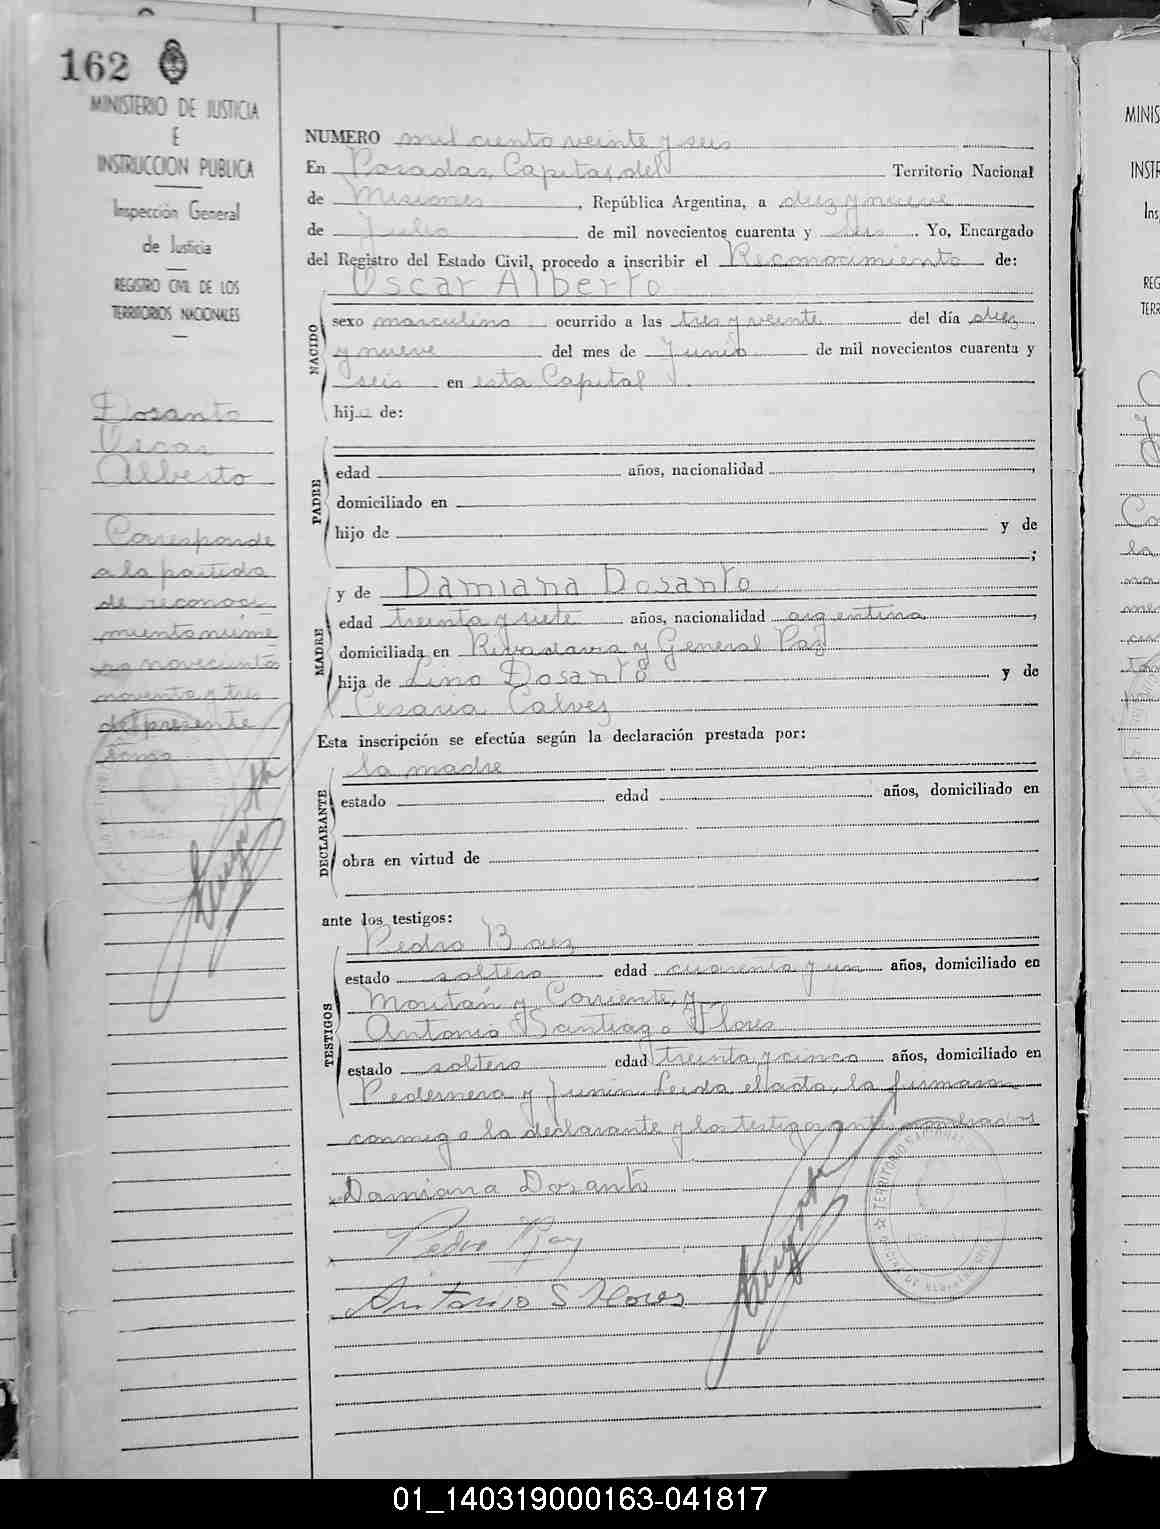 162
MINISTERIO DE JUSTICIA
E
INSTRUCCION PUBLICA
Inspección General
de Justicia
REGISTRO CIVIL DE LOS
TERRITORIOS NACIONALES
Dosanto
Oscar
Alberto
Corresponde
a la partida
de reconoci
miento núme
ro novecientos
noventa y tres
del presente
tomo
NUMERO mil ciento veinte y seis
En Posadas, Capital del Territorio Nacional
de Misiones, República Argentina, a diez y nueve
de Julio de mil novecientos cuarenta y seis. Yo, Encargado
del Registro del Estado Civil, procedo a inscribir el Reconocimiento de:
Oscar Alberto
NACIDO
sexo masculino ocurrido a las tres y veinte del día diez
y nueve del mes de Junio de mil novecientos cuarenta y
seis en esta Capital.
hijo de:
PADRE
edad años, nacionalidad ,
domiciliado en
hijo de y de
;
MADRE
y de Damiana Dosanto
edad treinta y siete años, nacionalidad argentina,
domiciliada en Rivadavia y General Paz
hija de Lino Dosanto y de
Cesaria Galvez
Esta inscripción se efectúa según la declaración prestada por:
DECLARANTE
la madre
estado edad años, domiciliado en
obra en virtud de
ante los testigos:
TESTIGOS
Pedro Baez
estado soltero edad cuarenta y un años, domiciliado en
y Corriente, y
Antonio Santiago Flores
estado soltero edad treinta y cinco años, domiciliado en
Pedernera y Junin. Leida el acta, la firmaron
conmigo la declarante y los testigos antes
Damiana Dosanto
Pedro
Antonio S Flores
TERRITORIO NACIONAL
MINIS
INSTR
Ins
REG
TERR
01_140319000163-041817